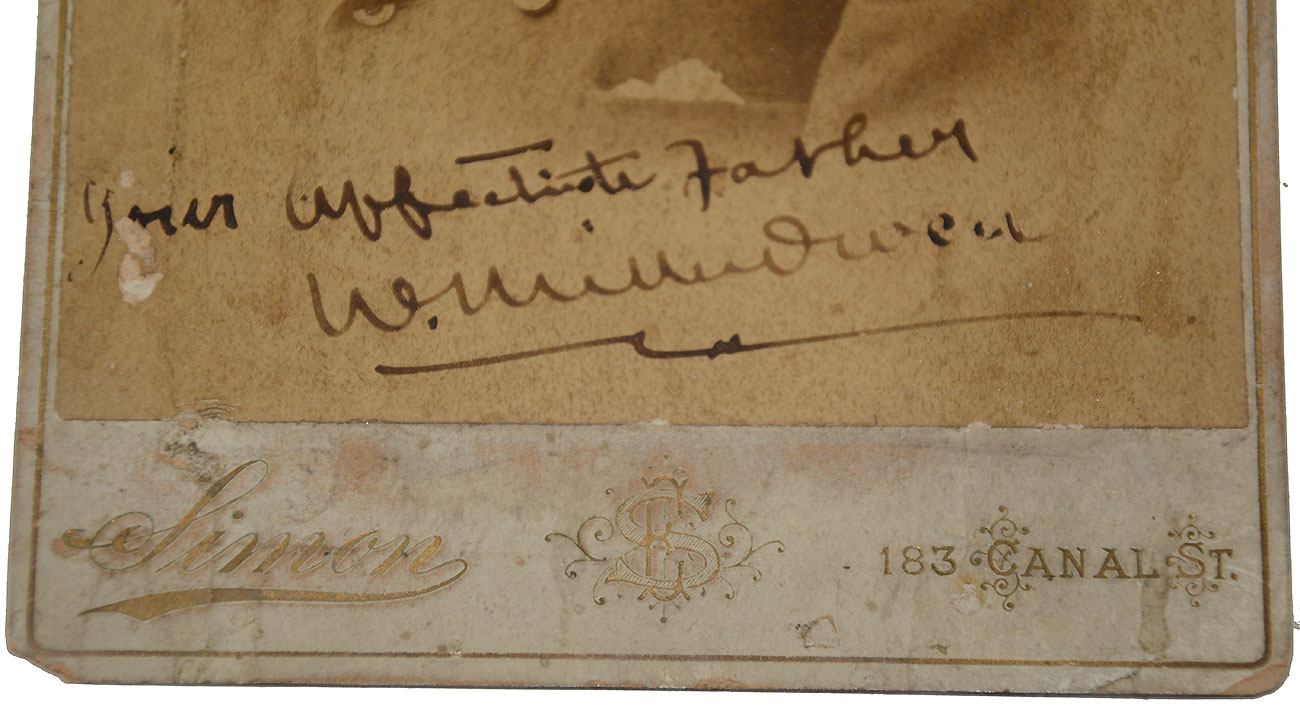 Your Affectinte Father
W. Miller Owen
Simon
183 CANAL ST.